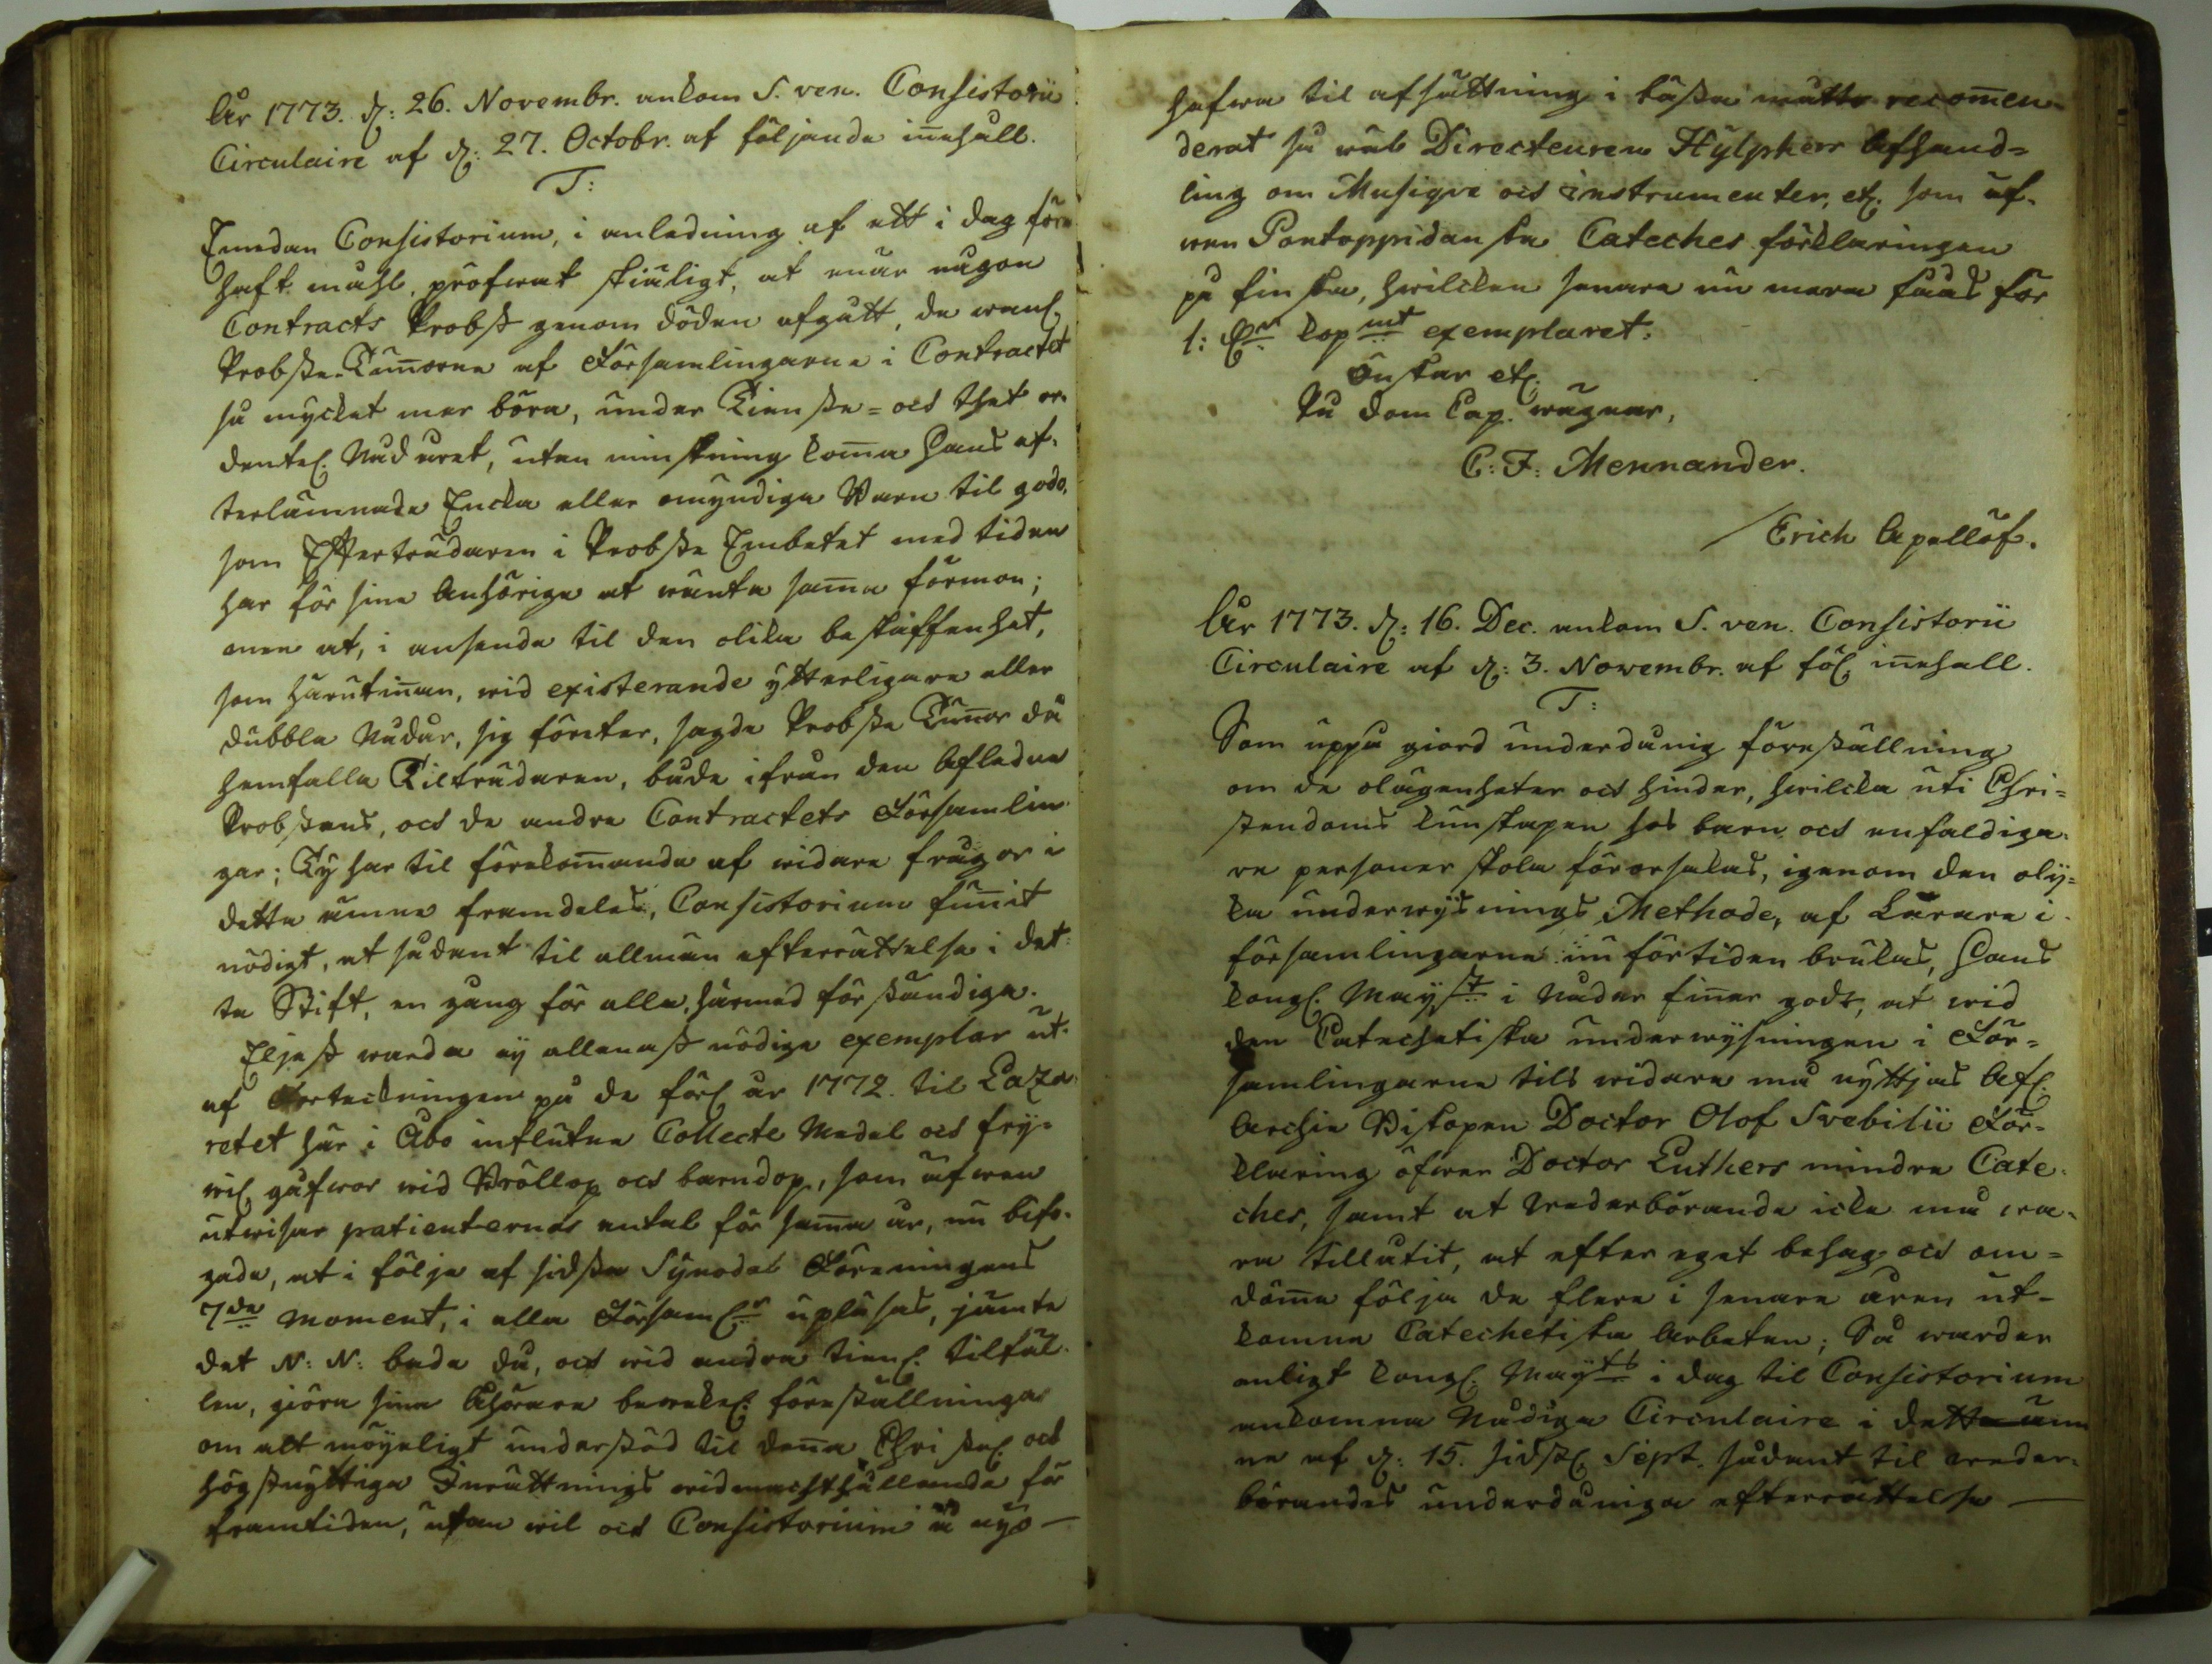 År 1773. d: 26. Novembr. ankom S. ven. Consistorii
Circulaire af d: 27. Octobr. af följande inehåll.
T:
Emedan Consistorium, i anledning af ett i dag före
haft måhl, pröfwat skiäligt, at enär någon
Contracts Probst genom döden afgått, de wanl.
Probste-Tunnorne af Församlingarne i Contractet
så mycket mer böra, under Tienste- och thet or-
dentel. Nåd året, utan minskning koma Hans ef-
terlämnade Encka eller omyndiga Barn til godo,
som Efterträdaren i Probste Embetet med tiden
har för sina Anhöriga at wänta sama förmon;
men at, i anseende til den olika beskaffenhet,
som härutinan, wid existerande ytterligare eller
dubbla Nådår, sig företer, sagde Probste Tunnor då
hemfalla Tilträdaren, både ifrån den Afledne
Probstens, och de andra Contractets Församlin-
gar; Ty har til förekomande af widare frågor i
detta ämne framdeles, Consistorium funit
nödigt, at sådant til allmän efterrättelse i det-
ta Stift, en gång för alla, härmed förständiga.
Eljest warda ej allenast nödige exemplar ut-
af Förteckningen på de förl. år 1772. til Laza-
retet här i Åbo influtne Collecte Medel och fry-
wil. gåfwor wid Bröllop och barndop, som äfwen
utwisar patienternas antal för sama år, nu bifo-
gade, at i följe af sidsta Synodal Föreningens
7de moment, i alla Församl:r upläsas, jämte
det N: N: bade då, och wid andra tienl. tilfäl-
len, giöra sina Åhörare bewekel. föreställningar
om alt möyeligt understöd til dena Christel. och
högstnyttiga Inrättnings widmachthållande för
framtiden, utan wil och Consistorium å nyo
hafwa til afsättning i bästa måtto recomen-
derat så wäl Directeuren Hülphers Afhand-
ling om Musique och instrumenter, etc. som äf-
wen Pontoppidanska Cateches förklaringen
på finska, hwilcken senare nu mera fåås för
1: Dr kopmt exemplaret.
Önskar etc.
På Dom Cap. wägnar,
C: F: Mennander.
Erich Apellöf.
År 1773. d: 16. Dec. ankom S. ven. Consistorii
Circulaire af d: 3. Novembr. af föl. inehåll.
T:
Som uppå giord underdånig föreställning
om de olägenheter och hinder, hwilcka uti Chri-
stendoms kunskapen hos barn och enfaldiga-
re personer skola förorsakas, igenom den oly-
ka underwijsnings Methode, af Lärare i
församlingarne nu förtiden brukas, Hans
Kongl. Maijst. i Nåder finer godt, at wid
den Catechetiska underwijsningen i För-
samlingarne tils widare må nyttjas Afl.
Archie Biskopen Doctor Olof Svebilii För-
klaring öfwer Doctor Luthers mindre Cate-
ches, samt at wederbörande icke må wa-
ra tillåtit, at efter eget behag och om-
döma följa de flere i senare åren ut-
komne Catechetiska Arbeten; Så warder
enligt Kongl. Maijts i dag til Consistorium
ankomne Nådiga Circulaire i detta äm
ne af d: 15. sidstl. Sept. sådant til weder-
börandes underdåniga efterrättelse